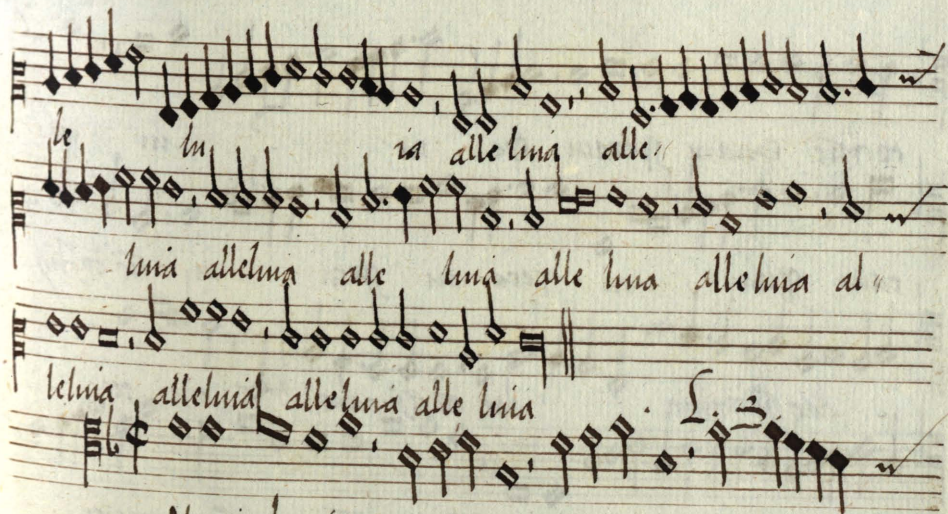 le lu ia alleluia alle
luia alleluia alle luia alle luia alleluia al
leluia alleluia alleluia alle luia